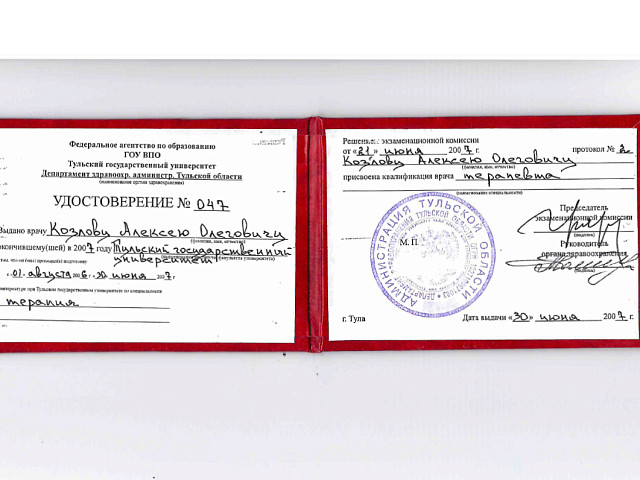 Федеральное агентство по образованию
ГОУ ВПО
Тульский государственный университет
Департамент здравоохр. администр. Тульской области
(наименование органа здравоохранения)
УДОСТОВЕРЕНИЕ № 047
Выдано врачу Козлову Алексею Олеговичу
(фамилия, имя, отчество)
окончившему(шей) в 2007 году Тульский государственный
университет (факультета университета)
«01» августа 2006 30 июня 2007г.
интернатуре при Тульском государственном университете по специальности
терапия
Решением экзаменационной комиссии
от «21» июня 2007 г. протокол № 2
Козлову Алексею Олеговичу
(фамилия, имя, отчество)
присвоена квалификация врача терапевта
(наименование специальности)
Председатель
экзаменационной комиссии
(подпись)
М. П.
Руководитель
органа здравоохранения
(подпись)
АДМИНИСТРАЦИЯ ТУЛЬСКОЙ ОБЛАСТИ
г. Тула Дата выдачи «30» июня 2007 г.